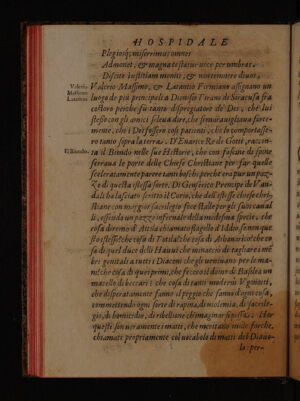 HOSPIDALE
Plegiosq; miserrimus omnes
Admonet, & magna testatur uoce per umbras.
Discite iustitiam moniti, & non temnere diuos.
Valerio Massimo. Lattantio
Valerio Massimo, & Latantio Firmiano assignano un
luogo de piu principali a Dionisio Tirano di Siracusa fra
costoro perche fù tanto dispregiatore de i Dei, che lui
stesso con gli amici soleua dire, che si merauigliaua forte-
mente, che i Dei fossero così patienti, che lo comportasse-
ro tanto sopra la terra. D'Enurico Re de Gotti, raccon-
Il Biondo.
ta il Biondo nelle sue Historie, che con fassate di spine
serraua le porte delle Chiese Christiane per far quelle
sceleratamente parere tanti boschi, perche era pur un paz-
zo di questa istessa sorte. Di Genserico Prencipe de Van-
dali ha lasciato scritto il Corio, che dell'istesse chiese chri-
stiane con maggior sacrilegio fece stalle per gli suoi caual
li, essendo un pazzo infernale della medesima specie. che
cosa diremo d'Attila chiamato flagello d'Iddio, se non que
sto stesso? che cosa di Totila? che cosa di
sa di quel duce delli che minacciò di tagliare i mem
bri genitali a tutti i Diaceni che gli ueniuano per le ma-
ni? che cosa di quei primi, che fecero il domo di Basilea un
macello di beccari? che cosa di tanti moderni Vgonotti,
che disperatamente fanno il peggio che sanno d'ogni cosa,
commettendo ogni sorte di rapina, di nicimia, di sacrile-
gio, di homicidio, di ribellione ch'imaginar si possa? Hor
questi son ueramente i matti, che meritano mille forche,
chiamati propriamente col uocabolo di matti del Diauo-
lo: per-